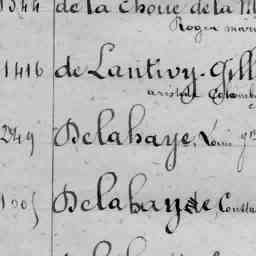 1344 de la Choue de la M
Roger mari
1416 de Lantivy-Gill
aristide Colomb
2749 Delahaye, Louis
1905 Delahayde, Consta